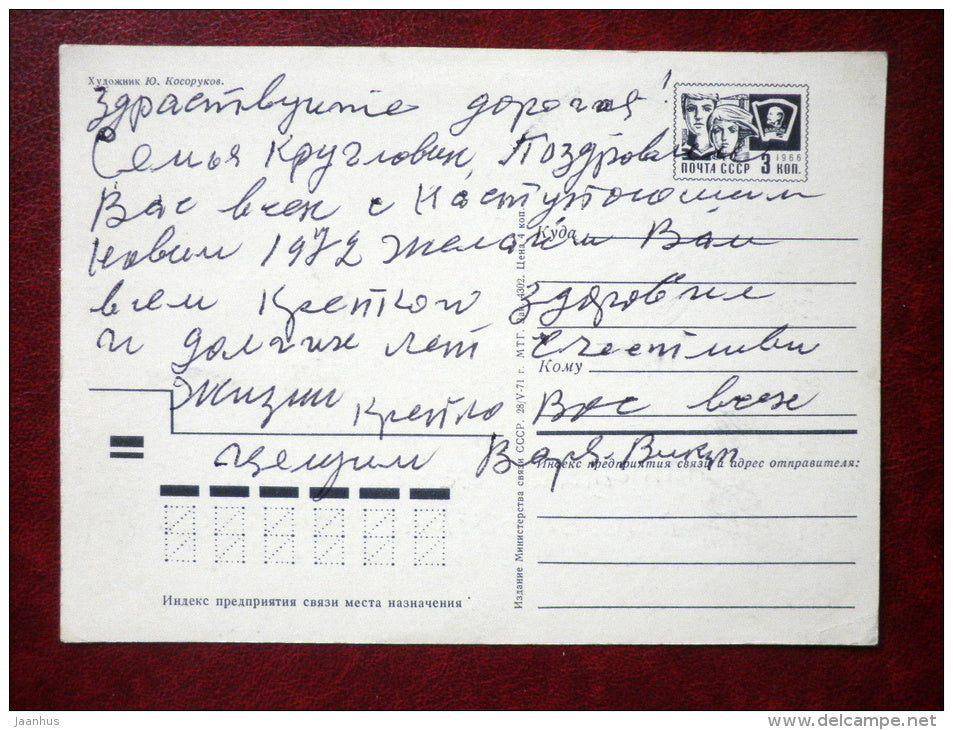 Художник Ю. Косоруков.
Здраствуите дорогая!
Семья Кругловых Поздровляем
Вас всех с Наступающим
Новим 1972 Желаем Вам
всем Крепкого здоровие
и долгих лет счестливи
Жизни
Крепко Вас всех
целуим Варя.
ПОЧТА СССР 3 КОП.
1966
Куда
Кому
Индекс предприятия связи и адрес отправителя:
Издание Министерства связи СССР. 28/V-71 г. МТГ. Зак. 4302. Цена 4 коп.
Индекс предприятия связи места назначения
Jaanhus
www.delcampe.net